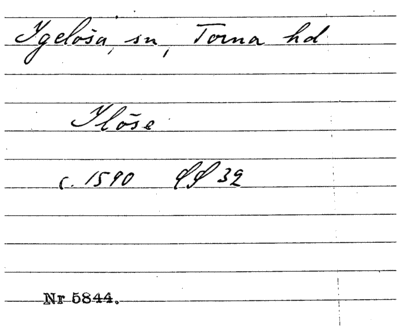 Igelösa, sn, Torna hd
Ilöse
c. 1590 LL 32
Nr 5844.